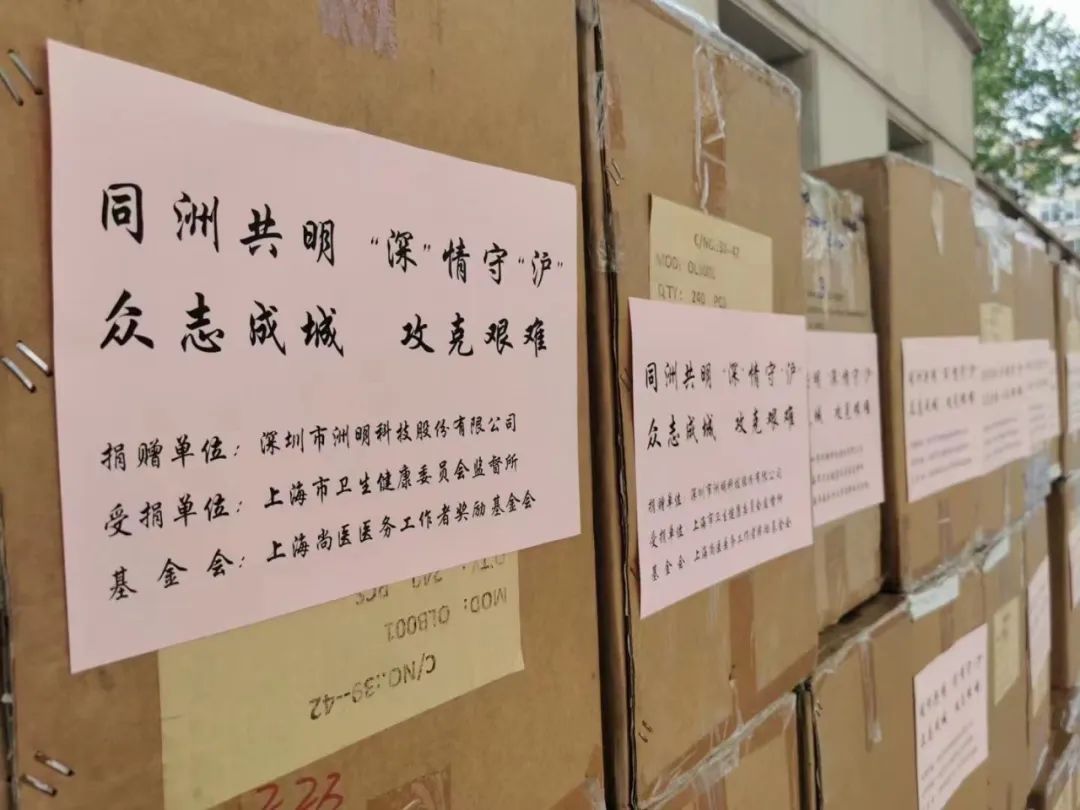 同洲共明 “深”情守“沪”
众志成城 攻克艰难
捐赠单位：深圳市洲明科技股份有限公司
受捐单位：上海市卫生健康委员会监督所
基金会：上海尚医医务工作者奖励基金会
QTY: 240 PCS
MOD: OLB001
C/NO.:39--42
223
C/NO.:39--42
MOD: OLB001
QTY: 240 PCS
同洲共明 “深”情守“沪”
众志成城 攻克艰难
捐赠单位：深圳市洲明科技股份有限公司
受捐单位：上海市卫生健康委员会监督所
基金会：上海尚医医务工作者奖励基金会
明 深情守沪
成城 攻克艰难